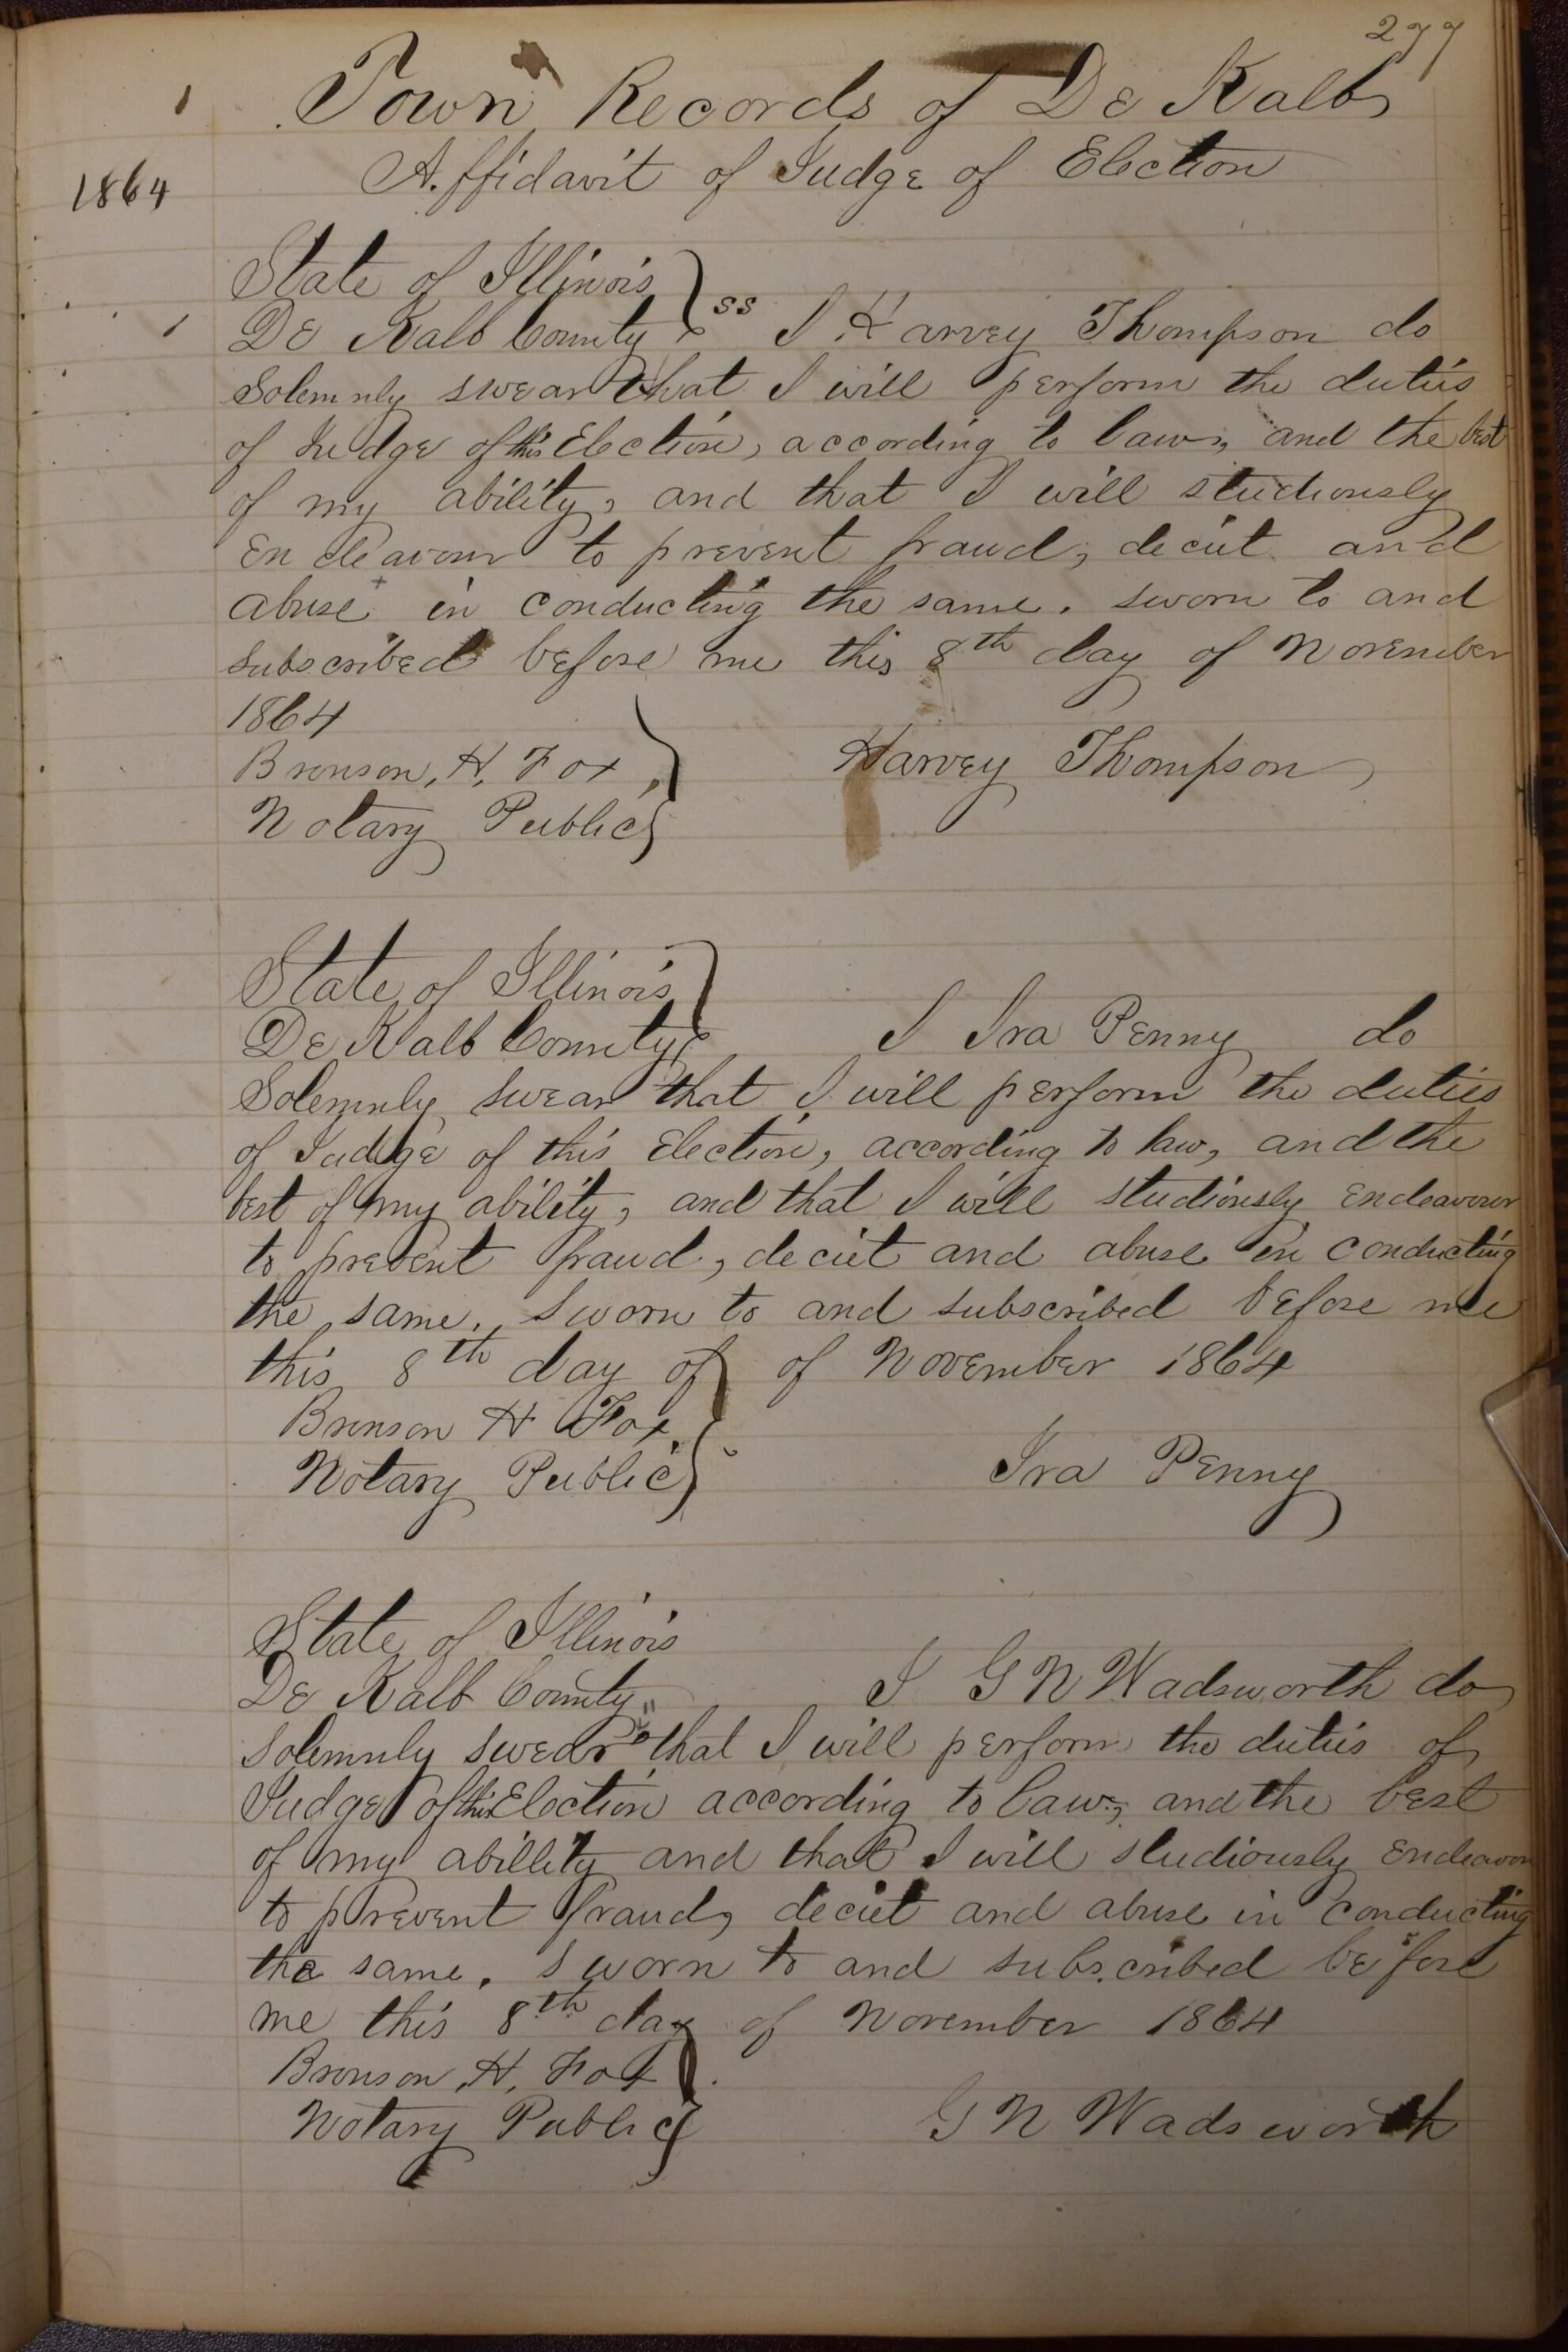 277
Town Records of De Kalb
Affidavit of Judge of Election
1864
State of Illinois
De Kalb County ss I Harvey Thompson do
Solemnly swear that I will perform the duties
of Judge of this Election, according to law, and the best
of my ability, and that I will studiously
Endeavour to prevent fraud, deciet and
abuse in conducting the same. sworn to and
subscribed before me this 8th day of November
1864
Bronson, H. Fox,
Notary Public
Harvey Thompson
State of Illinois
De Kalb County I Ira Penny do
Solemnly swear that I will perform the duties
of Judge of this Election, according to law, and the
best of my ability, and that I will studiously Endeavour
to prevent fraud, deciet and abuse in conducting
the same. Sworn to and subscribed before me
this 8th day of of November 1864
Bronson H Fox,
Notary Public
Ira Penny
State of Illinois
De Kalb County I G N Wadsworth do
solemnly swear that I will perform the duties of
Judge of this Election according to law, and the best
of my abillity and that I will studiously Endeavour
to prevent fraud, deciet and abuse in conducting
the same. Sworn to and subscribed before
me this 8th day of November 1864
Bronson, H. Fox
Notary Public
G N Wadsworth